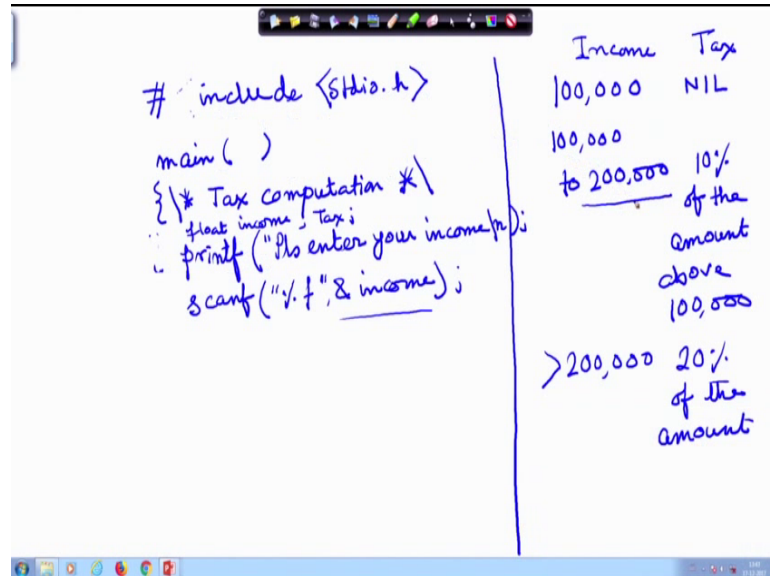 # include <Stdio.h>
main( )
{\* Tax computation *\
float income, Tax;
printf ("Pls enter your income\n);
scanf ("%f", & income);
Income Tax
100,000 NIL
100,000
to 200,000 10%
of the
amount
above
100,000
>200,000 20%
of the
amount